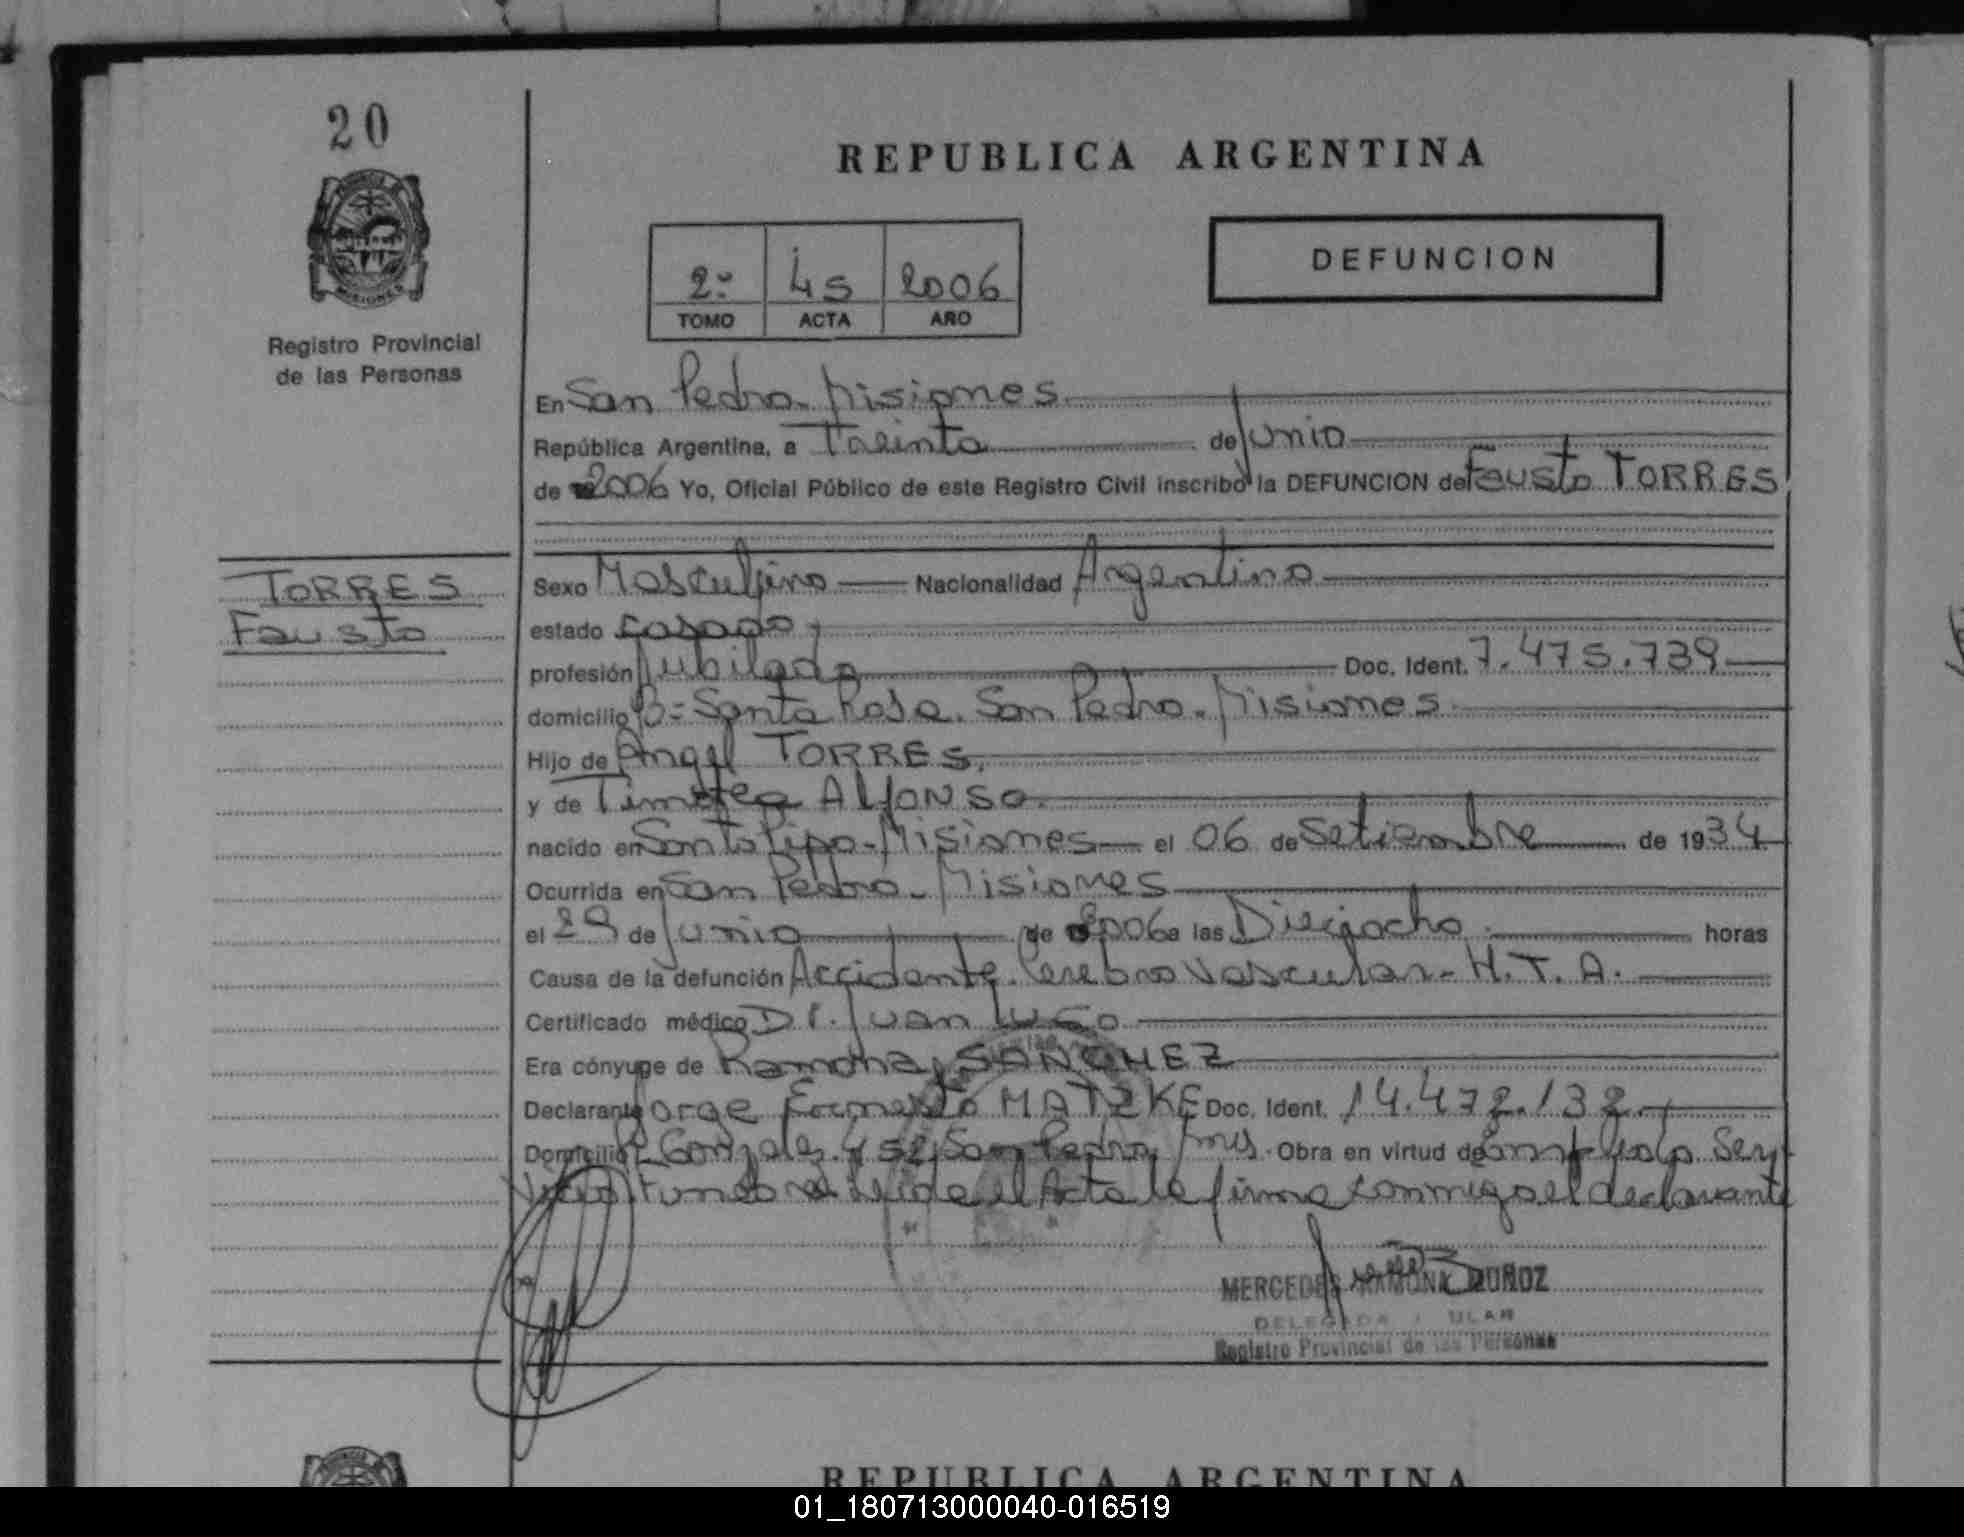 20
REPUBLICA ARGENTINA
2º 45 2006
TOMO ACTA AÑO
DEFUNCION
Registro Provincial
de las Personas
En San Pedro - Misiones
República Argentina, a Treinta de Junio
de 2006 Yo, Oficial Público de este Registro Civil inscribo la DEFUNCION de Fausto TORRES
TORRES
Fausto
Sexo Masculino Nacionalidad Argentino
estado casado
profesión Jubilado Doc. Ident. 7.475.739
domicilio Bº Santa Rosa. San Pedro. Misiones
Hijo de Angel TORRES
y de Timotea Alfonso
nacido en Santo Pipo - Misiones el 06 de Setiembre de 1934
Ocurrida en San Pedro - Misiones
el 29 de Junio de 2006 a las Dieciocho horas
Causa de la defunción Accidente Cerebro Vascular - H.T.A.
Certificado médico Dr. Juan Lugo
Era cónyuge de Ramona SANCHEZ
Declarante Jorge Ernesto MATZKE Doc. Ident. 14.472.132
Domicilio Gonzalez 452 San Pedro, Mnes. Obra en virtud de Empleado Ser
vicio Funebre Leida el Acta la firma conmigo el declarante
MERCEDES RAMONA MUÑOZ
DELEGADA
Registro Provincial de las Personas
REPUBLICA ARGENTINA
01_180713000040-016519